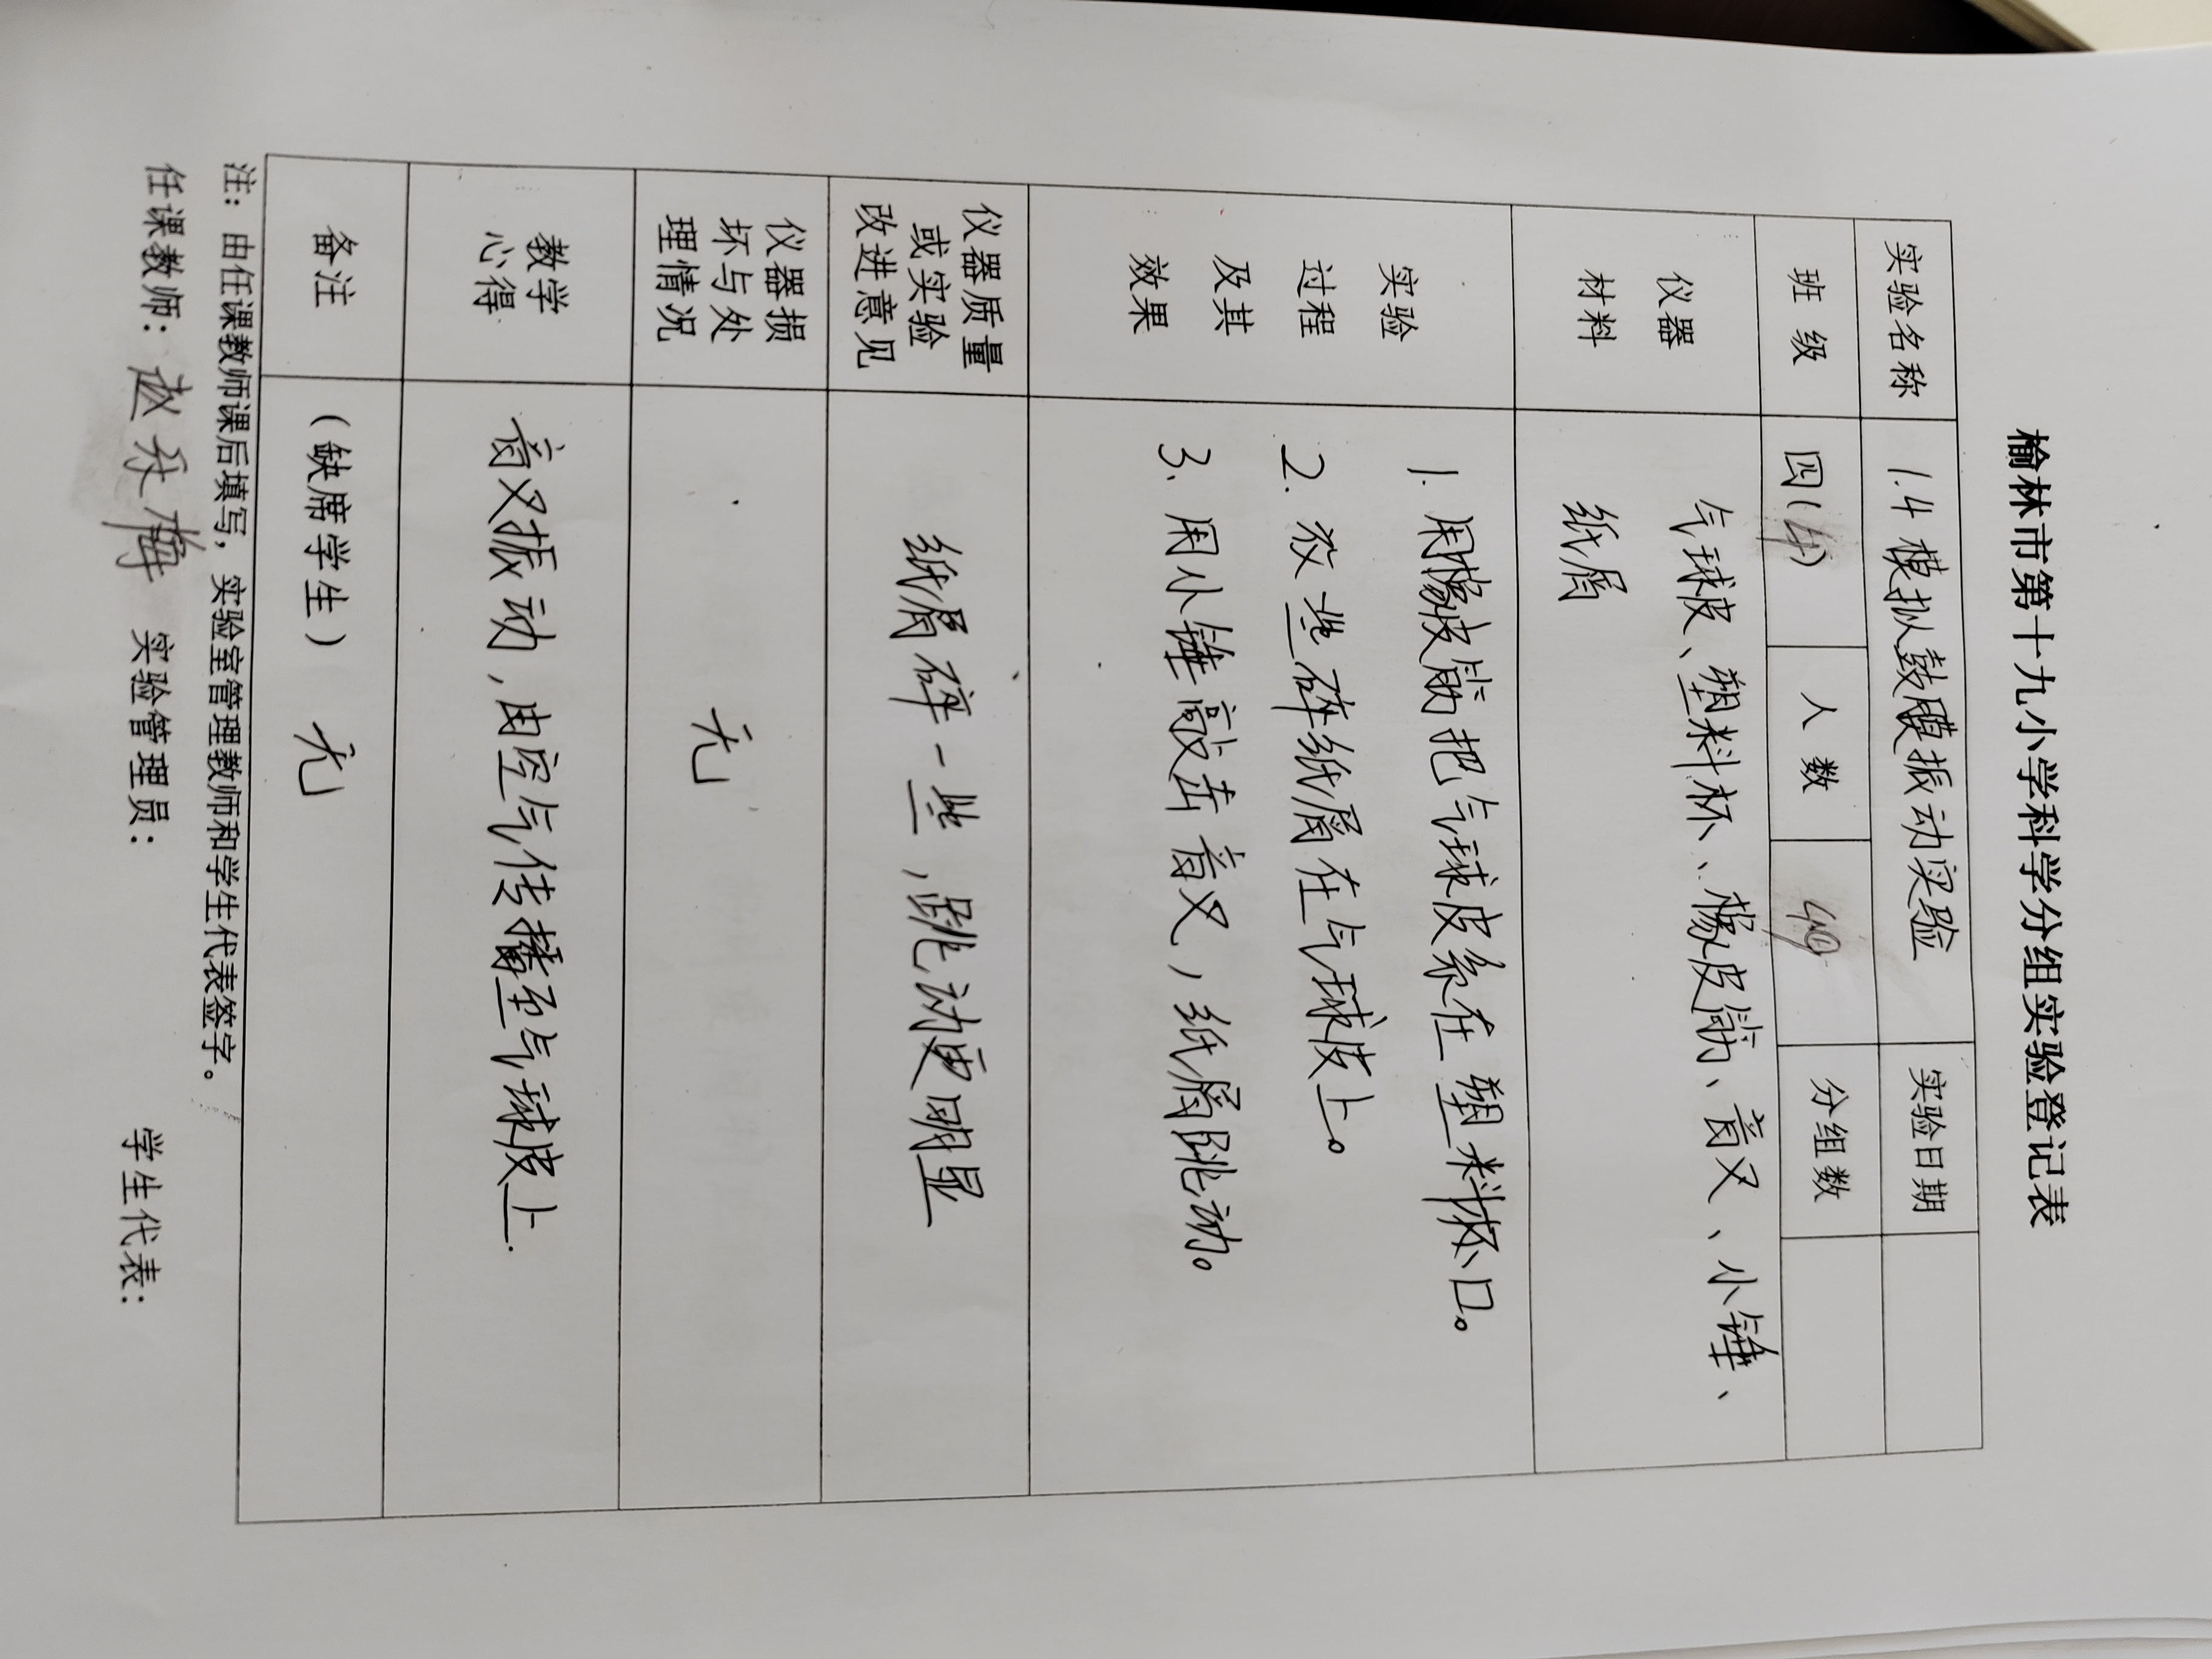 榆林市第十九小学科学分组实验登记表
实验名称 1.4 模拟鼓膜振动实验 实验日期
班级 四(4) 人数 分组数
仪器材料 气球皮、塑料杯、橡皮筋、音叉、小锤、
纸屑
实验过程及其效果 1. 用橡皮筋把气球皮系在塑料杯口。
2. 放些碎纸屑在气球皮上。
3、用小锤敲击音叉,纸屑跳动。
仪器质量或实验改进意见 纸屑碎一些,跳动更明显
仪器损坏与处理情况 无
教学心得 音叉振动,由空气传播至气球皮上.
备注 (缺席学生) 无
注:由任课教师课后填写,实验室管理教师和学生代表签字。
任课教师:赵 梅 实验管理员: 学生代表: